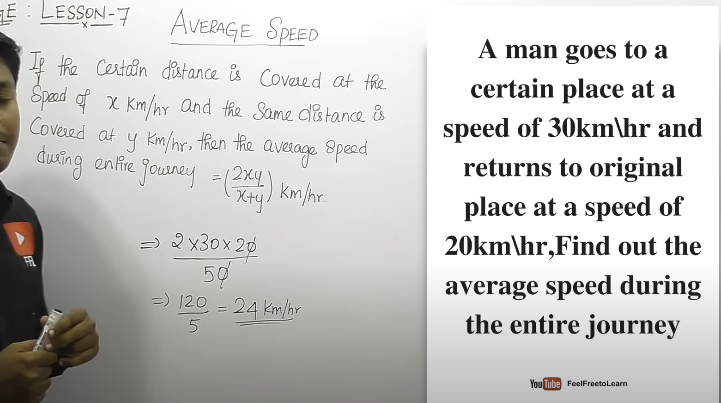 E : LESSON-7
AVERAGE SPEED
If the certain distance is Covered at the
Speed of x Km/hr and the Same distance is
Covered at y Km/hr, then the average speed
during entire journey = (2xy/x+y) Km/hr.
⇒ 2×30×20/50
⇒ 120/5 = 24 Km/hr
FFL
A man goes to a
certain place at a
speed of 30km\hr and
returns to original
place at a speed of
20km\hr,Find out the
average speed during
the entire journey
YouTube FeelFreetoLearn